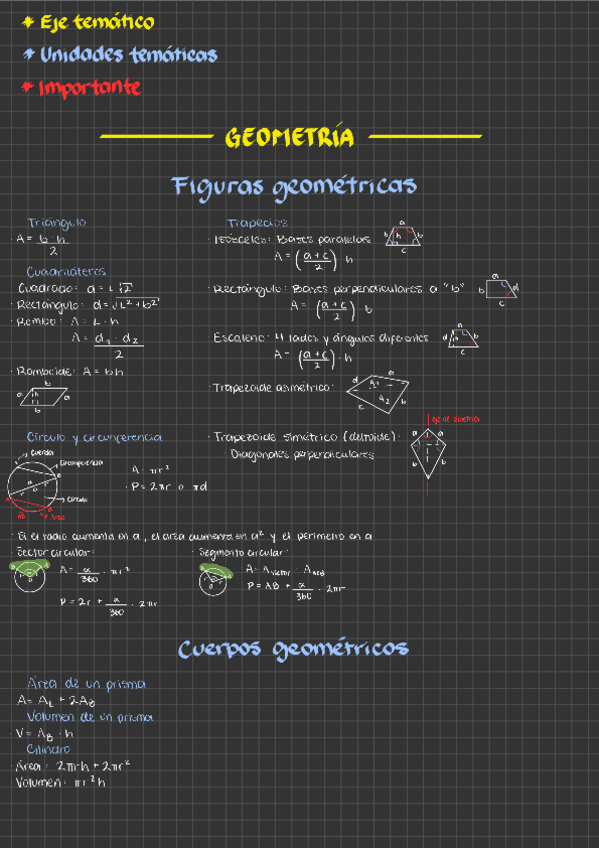 * Eje temático
* Unidades temáticas
* Importante
GEOMETRÍA
Figuras geométricas
Triángulo
· A = b · h / 2
Cuadriláteros
Cuadrado: d = L√2
· Rectángulo: d = √L² + b²
· Rombo: A = L · h
A = d₁ · d₂ / 2
· Romboide: A = bh
b
a h a
b
Trapecios
· Isósceles: Bases paralelas
A = (a + c / 2) · h
a
b h b
c
· Rectángulo: Bases perpendiculares a "b"
A = (a + c / 2) · b
a
b d
c
Escaleno: 4 lados y ángulos diferentes
A = (a + c / 2) · h
a
d h b
c
· Trapezoide asimétrico:
a
d
b
c
A₂
· Trapezoide simétrico (deltoide):
Diagonales perpendiculares
eje de simetría
a a
b b
Círculo y circunferencia
Cuerda
Circunferencia
Círculo
Arco
A = πr²
· P = 2πr o πd
· Si el radio aumenta en a, el área aumenta en a² y el perímetro en a
· Sector circular:
A = α / 360 · πr²
P = 2r + α / 360 · 2πr
· Segmento circular:
A = A sector - A
P = AB + α / 360 · 2πr
Cuerpos geométricos
Área de un prisma
A = A_L + 2A_B
Volumen de un prisma
· V = A_B · h
Cilindro
· Área: 2πr·h + 2πr²
Volumen: πr²h